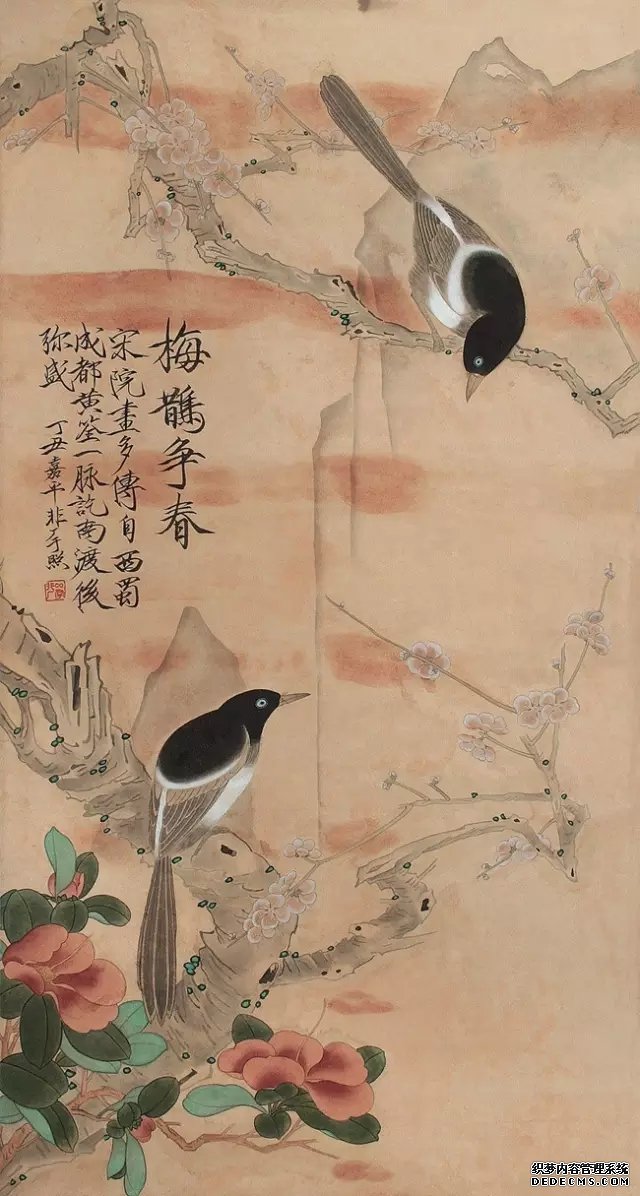 梅鵲争春
宋院畫多傳自西蜀
成都黄筌一脉訖南渡後
弥盛
丁丑嘉平非于照
织梦内容管理系统
DEDECMS.COM